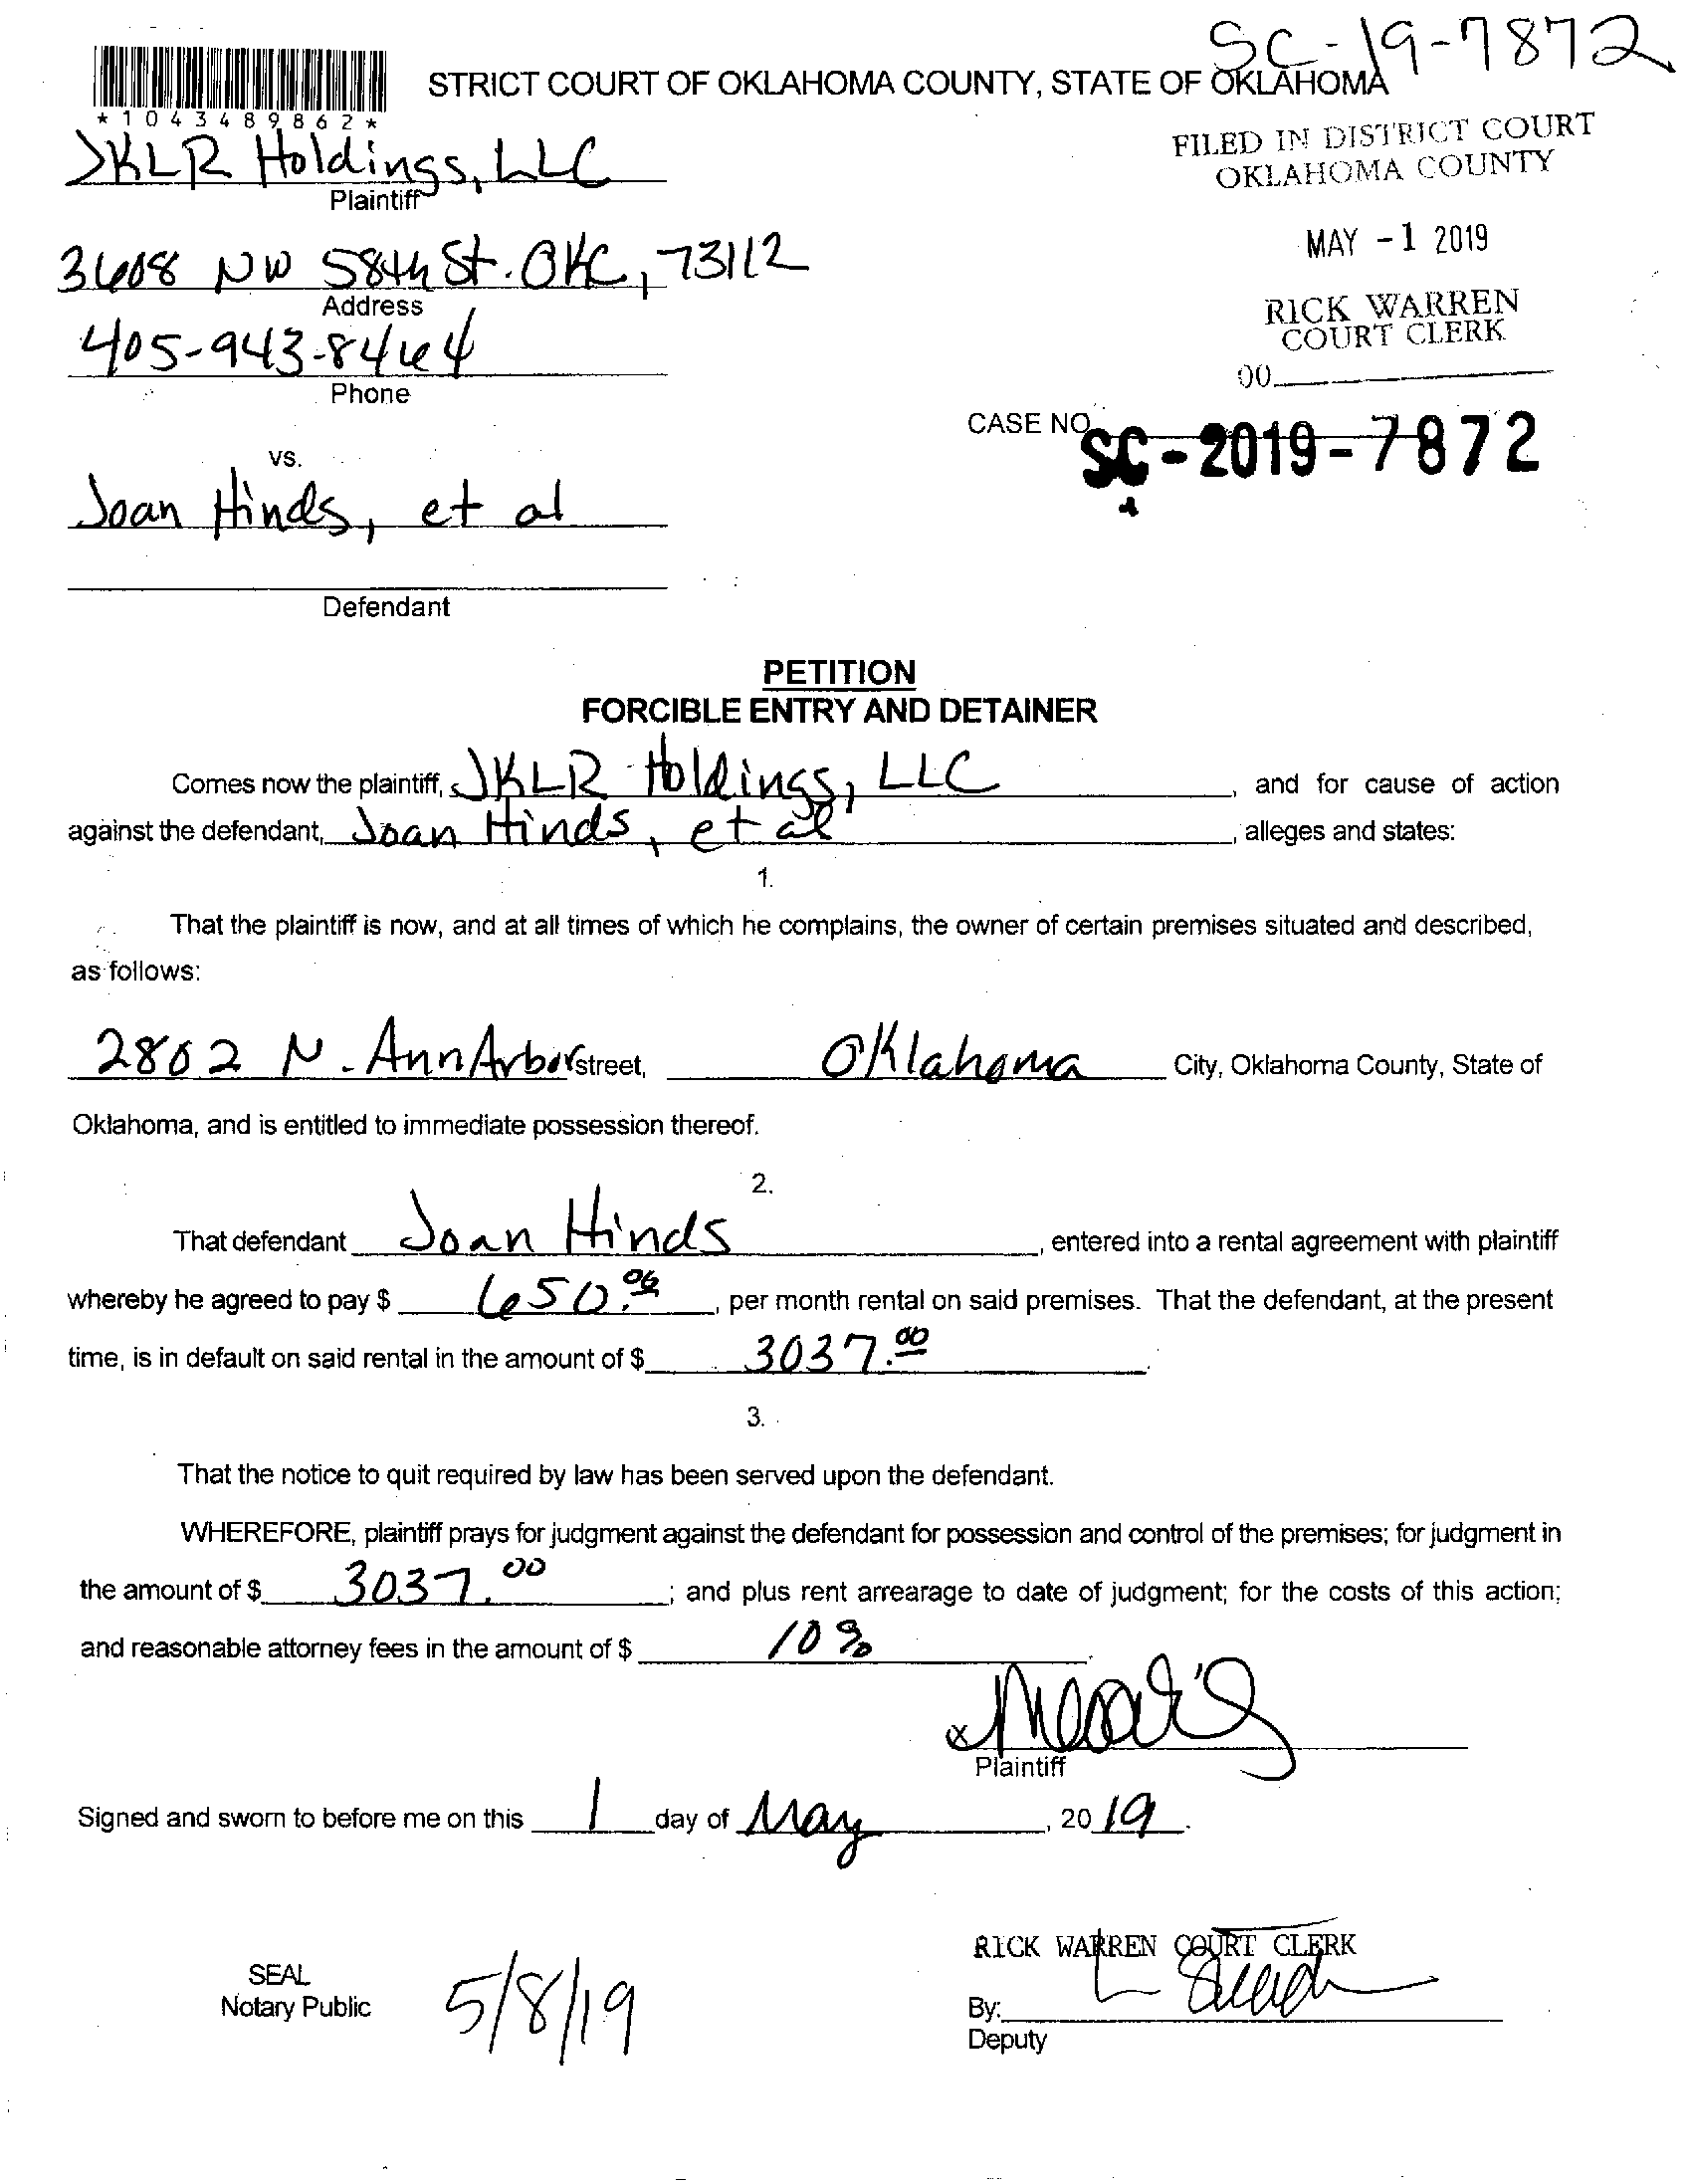 SC-19-7872
STRICT COURT OF OKLAHOMA COUNTY, STATE OF OKLAHOMA
*1043489862*
FILED IN DISTRICT COURT
OKLAHOMA COUNTY
JKLR Holdings, LLC
Plaintiff
MAY -1 2019
3608 NW 58th St. OKC, 73112
Address
RICK WARREN
COURT CLERK
405-943-8464
Phone
00
CASE NO.
SC-2019-7872
vs.
Joan Hinds, et al
Defendant
PETITION
FORCIBLE ENTRY AND DETAINER
Comes now the plaintiff, JKLR Holdings, LLC, and for cause of action
against the defendant, Joan Hinds, et al, alleges and states:
1.
That the plaintiff is now, and at all times of which he complains, the owner of certain premises situated and described,
as follows:
2802 N. Ann Arbor street, Oklahoma City, Oklahoma County, State of
Oklahoma, and is entitled to immediate possession thereof.
2.
That defendant Joan Hinds, entered into a rental agreement with plaintiff
whereby he agreed to pay $ 650.00, per month rental on said premises. That the defendant, at the present
time, is in default on said rental in the amount of $ 3037.00.
3.
That the notice to quit required by law has been served upon the defendant.
WHEREFORE, plaintiff prays for judgment against the defendant for possession and control of the premises; for judgment in
the amount of $ 3037.00; and plus rent arrearage to date of judgment; for the costs of this action;
and reasonable attorney fees in the amount of $ 10%.
x
Plaintiff
Signed and sworn to before me on this 1 day of May, 2019.
RICK WARREN COURT CLERK
SEAL
Notary Public
5/8/19
By:
Deputy